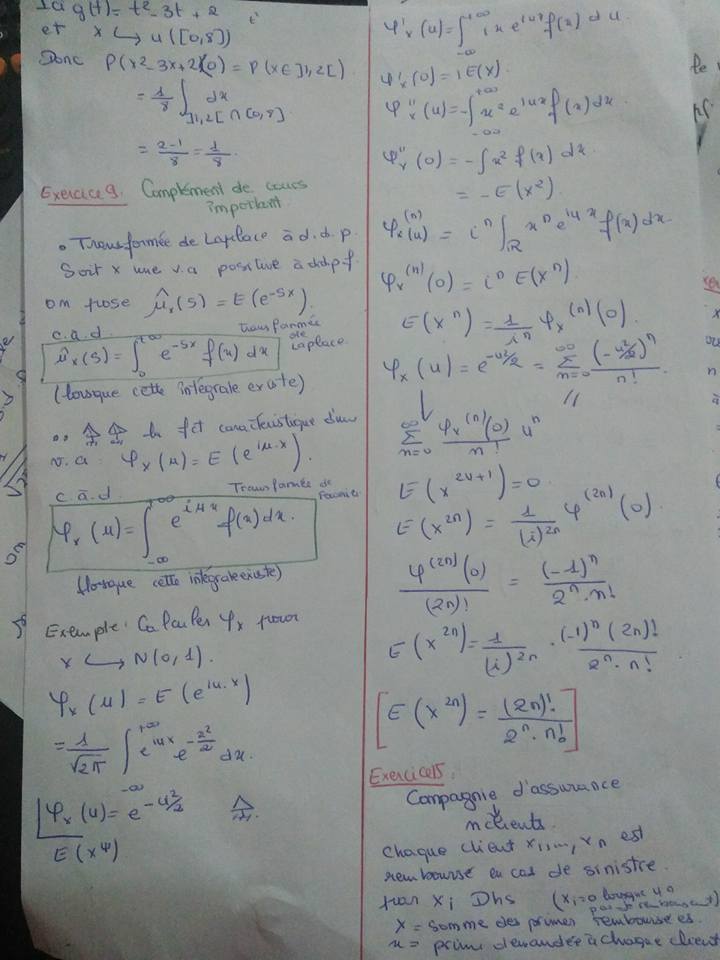 g(t) = t² - 3t + 2
et X ↪ u([0,8])
Donc P(x²-3x+2<0) = P(X∈]1,2[)
= 1/8 ∫_{]1,2[∩[0,8]} dx
= (2-1)/8 = 1/8.
Exercice 9. Complément de cours
important.
• Transformée de Laplace à d.d.p.
Soit X une v.a positive à d.d.p f.
on pose μ̂_X(s) = E(e^{-sX}).
c.à.d. Transformée
de Laplace.
μ̂_X(s) = ∫_0^{+∞} e^{-sx} f(x) dx
(lorsque cette intégrale existe)
la fct caractéristique d'une
v.a : φ_X(u) = E(e^{iu.X}).
c.à.d. Transformée de
Fourier
φ_X(u) = ∫_{-∞}^{+∞} e^{iux} f(x) dx.
(lorsque cette intégrale existe)
Exemple : Calculer φ_X pour
X ↪ N(0,1).
φ_X(u) = E(e^{iu.X})
= 1/√2π ∫_{-∞}^{+∞} e^{iux} e^{-x²/2} dx.
φ_X(u) = e^{-u²/2}
E(X⁴)
φ'_X(u) = ∫_{-∞}^{+∞} ix e^{iux} f(x) du.
φ'_X(0) = iE(X)
φ''_X(u) = -∫_{-∞}^{+∞} x² e^{iux} f(x) dx
φ''_X(0) = -∫ x² f(x) dx
= -E(X²).
φ_X^{(n)}(u) = iⁿ ∫_ℝ xⁿ e^{iux} f(x) dx.
φ_X^{(n)}(0) = iⁿ E(Xⁿ).
E(Xⁿ) = 1/iⁿ φ_X^{(n)}(0).
φ_X(u) = e^{-u²/2} = Σ_{n=0}^{∞} (-u²/2)ⁿ/n!
↓ //
Σ_{n=0}^{∞} φ_X^{(n)}(0)/n! uⁿ
E(X^{2n+1}) = 0
E(X^{2n}) = 1/(i)^{2n} φ^{(2n)}(0)
φ^{(2n)}(0)/(2n)! = (-1)ⁿ/(2ⁿ.n!)
E(X^{2n}) = 1/(i)^{2n} . (-1)ⁿ(2n)!/(2ⁿ.n!)
[E(X^{2n}) = (2n)!/(2ⁿ.n!)]
Exercice 15.
Compagnie d'assurance
↓
n clients.
Chaque client X₁,..., Xₙ est
remboursé en cas de sinistre
par Xᵢ Dhs (Xᵢ=0 lorsque
X = somme des primes remboursées.
x = prime demandée à chaque client